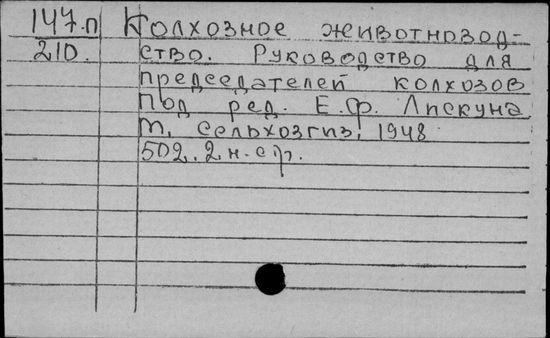 147.п Колхозное животновод-
210. ство. Руководство для
председателей колхозов
Под ред. Е.Ф. Лискуна
М, Сельхозгиз, 1948
502. 2 н. с гр.